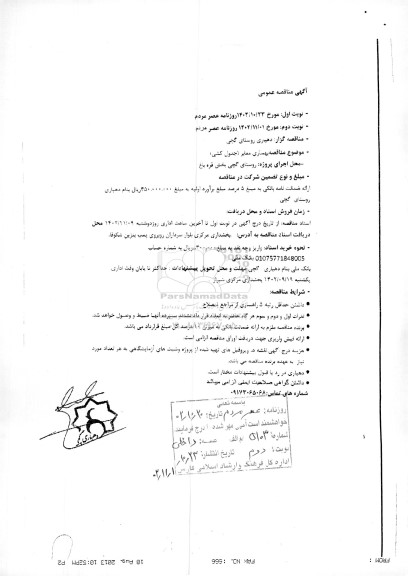 آگهی مناقصه عمومی
- نوبت اول: مورخ ۱۴۰۲/۱۰/۲۳ روزنامه عصر مردم
- نوبت دوم: مورخ ۱۴۰۲/۱۱/۰۱ روزنامه عصر مردم
- مناقصه گزار: دهیاری روستای گچی
- موضوع مناقصه: بهسازی معابر (جدول کشی)
- محل اجرای پروژه: روستای گچی بخش قره باغ
- مبلغ و نوع تضمین شرکت در مناقصه
ارائه ضمانت نامه بانکی به مبلغ ۵ درصد مبلغ برآورد اولیه به مبلغ ۴۵۰.۰۰۰.۰۰۰ ریال بنام دهیاری
روستای گچی
- زمان فروش اسناد و محل دریافت:
اسناد مناقصه: از تاریخ درج آگهی در نوبت اول تا آخرین ساعت اداری روز دوشنبه ۱۴۰۲/۱۱/۰۹ محل
دریافت اسناد مناقصه به آدرس: بخشداری مرکزی بلوار سرداران روبروی پمپ بنزین شکوفا.
- نحوه خرید اسناد: واریز وجه نقد به مبلغ ریال به شماره حساب
01075771848005
بانک ملی بنام دهیاری گچی مهلت و محل تحویل پیشنهادات: حداکثر تا پایان وقت اداری
یکشنبه بخشداری مرکزی شیراز
- شرایط مناقصه:
ParsNamadData
داشتن حداقل رتبه ۵ راهسازی از مراجع ذیصلاح
نفرات اول و دوم و سوم هر گاه حاضر به انعقاد قرارداد نشدند سپرده آنها ضبط و وصول خواهد شد.
برنده مناقصه ملزم به ارائه ضمانت بانکی به میزان ۱۰ درصد کل مبلغ قرارداد می باشد.
ارائه فیش واریزی جهت دریافت اوراق مناقصه الزامی است
هزینه درج آگهی نقشه ها، پروفیل های تهیه شده از پروژه وتست های آزمایشگاهی به هر تعداد مورد
نیاز به عهده برنده مناقصه می باشد.
دهیاری در رد یا قبول پیشنهادات مختار است.
داشتن گواهی صلاحیت ایمنی الزامی میباشد
شماره های تماس: ۰۹۱۷۳۰۶۵۰۶۸
باسمه تعالی
روزنامه: عصر مردم تاریخ: ۰۲/۱۰/۲۰
خواهشمند است امر شود درج فرمایند
شماره: ۵۱۰۳
نوبت: دوم تاریخ انتشار:
اداره کل فرهنگ و ارشاد اسلامی فارس
FROM : FAX NO. :666 10 Aug. 2013 10:52PM P2